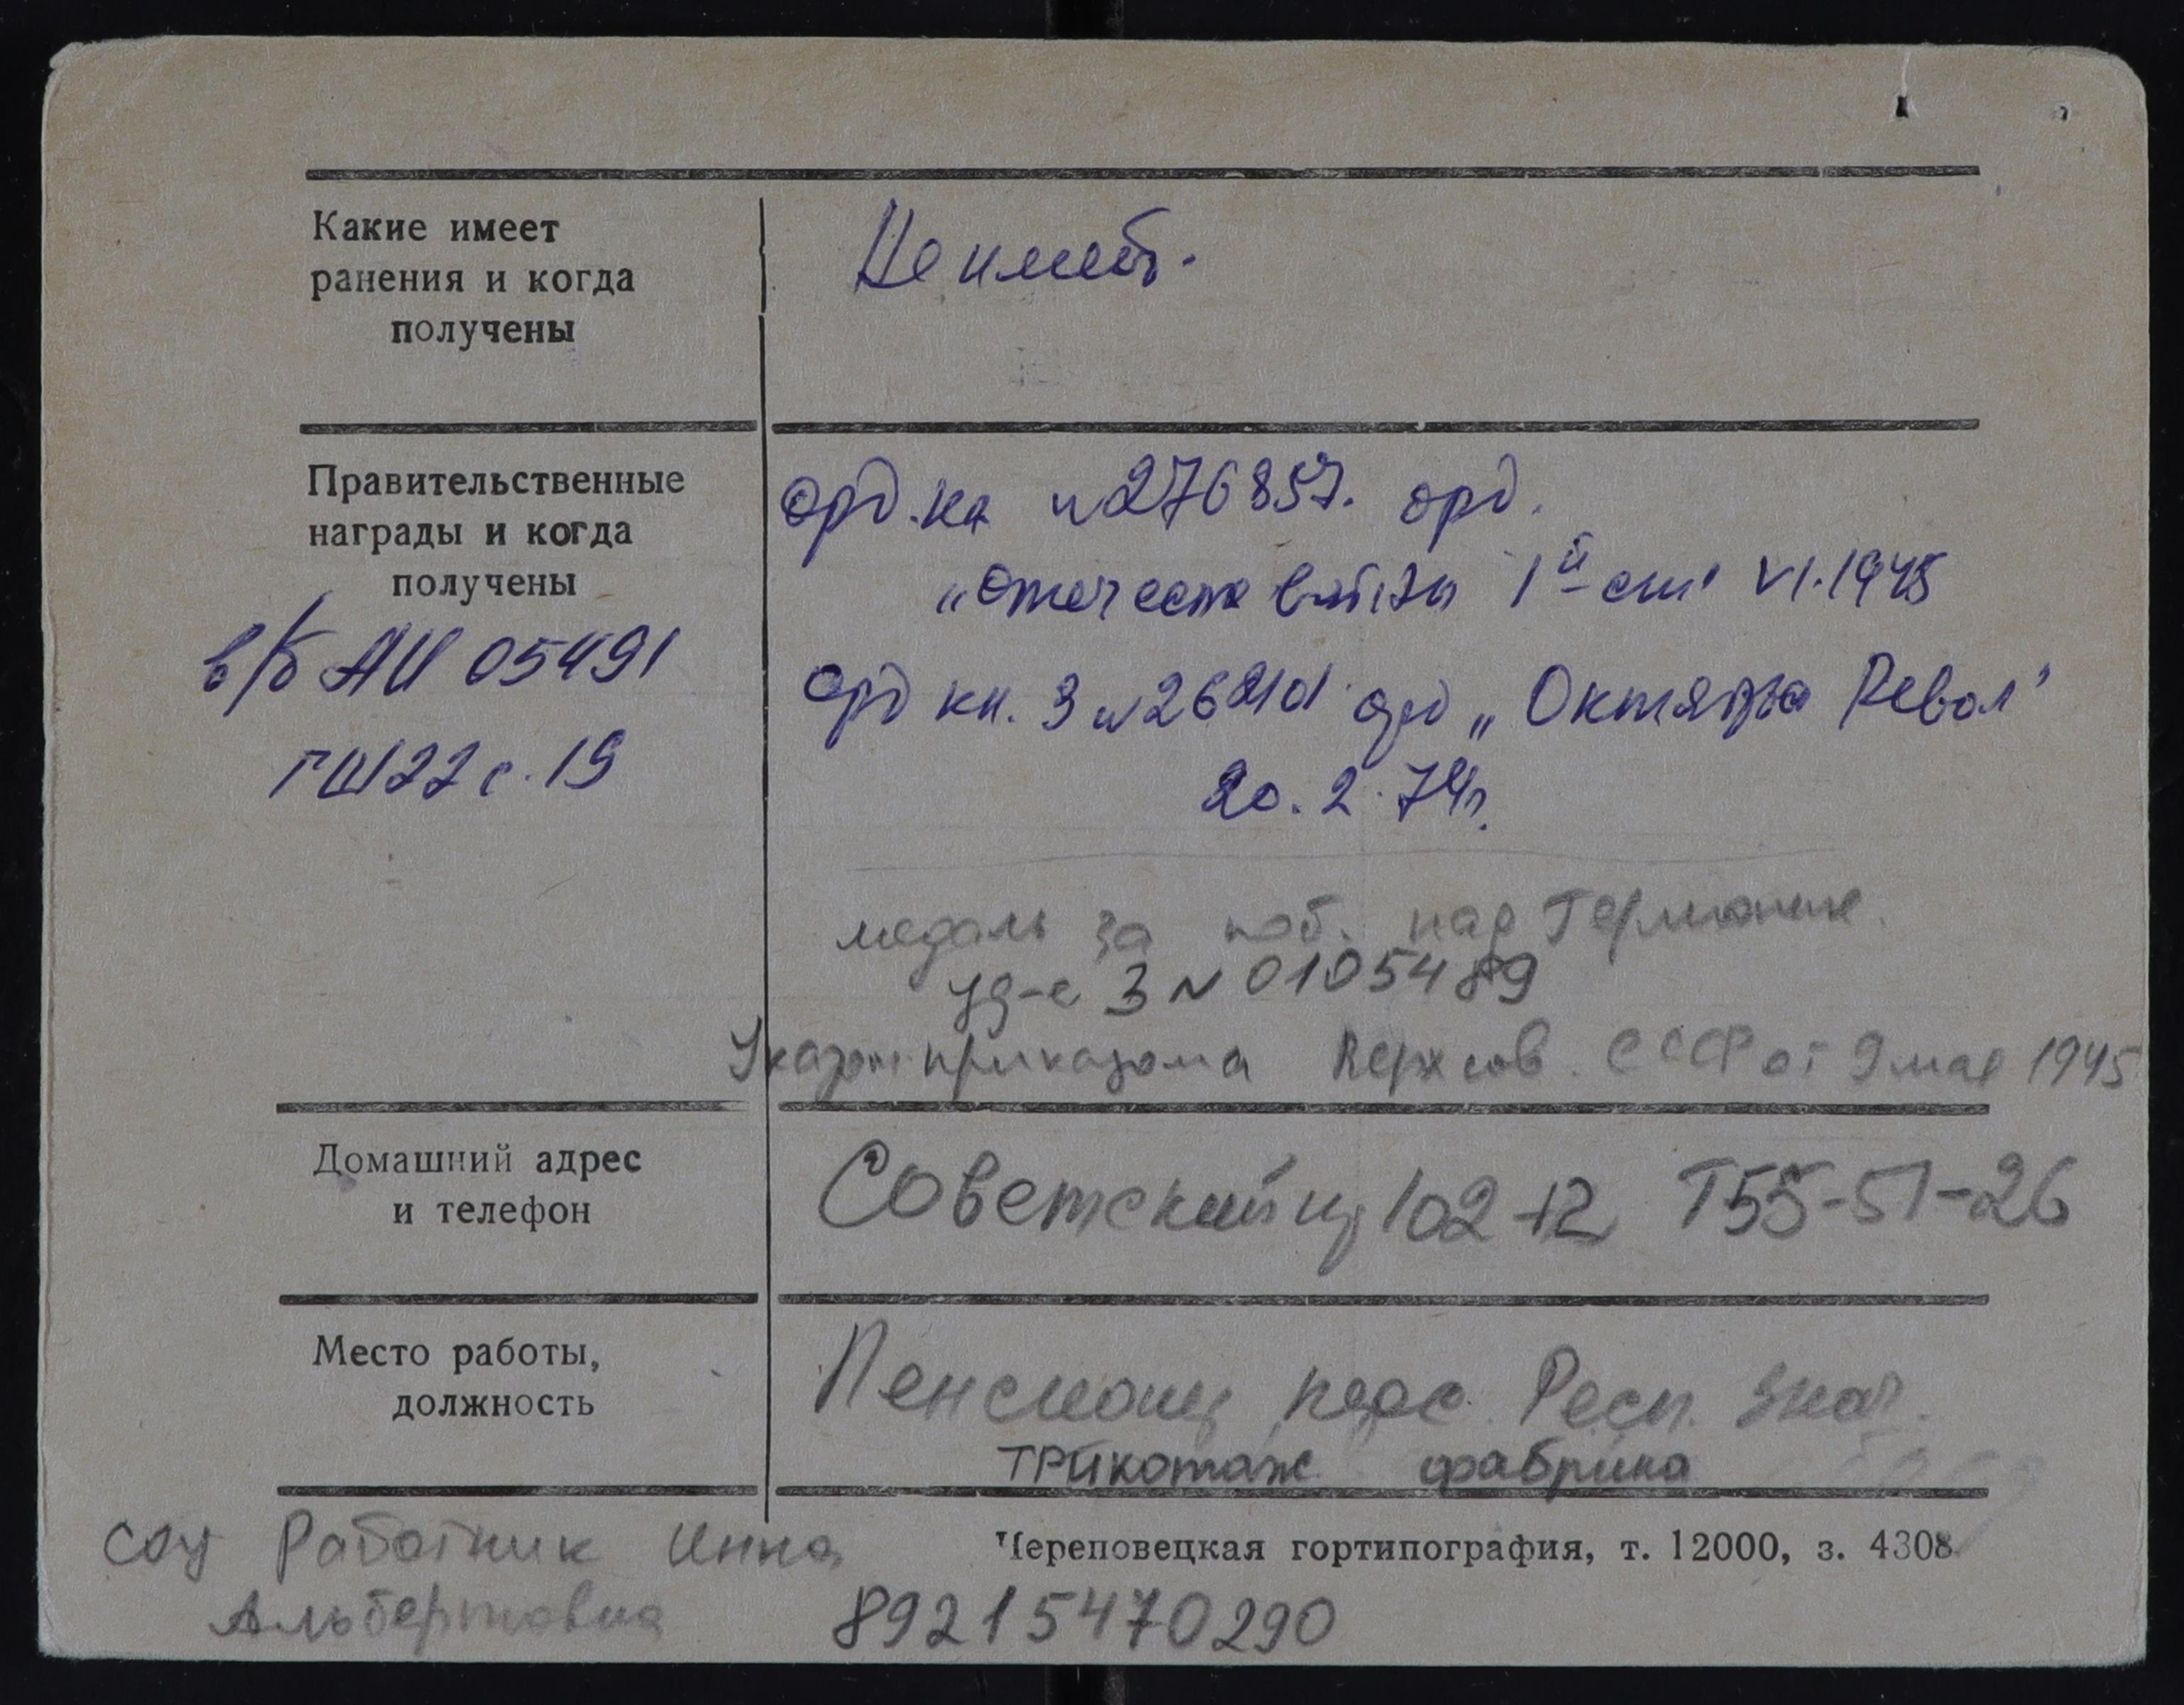 Какие имеет
ранения и когда
получены
Не имеет.
Правительственные
награды и когда
получены
в/б АИ 05491
ГШ 22 с. 19
орд. кн №276857. орд.
„Отечеств войны 1й ст. VI.1945
Орд кн. З №26 орд „Октябр Револ"
20.2.74г.
медаль за поб. над Германие.
уд-е З N 0105489
Указом Верх сов. СССР от 9 мае 1945
Домашний адрес
и телефон
Советский 102-12 Т55-51-26
Место работы,
должность
Пенсионер перс. Респ. знач.
Трикотаж фабрика
соц Работник Инна
Альбертовна
89215470290
Череповецкая гортипография, т. 12000, з. 4308